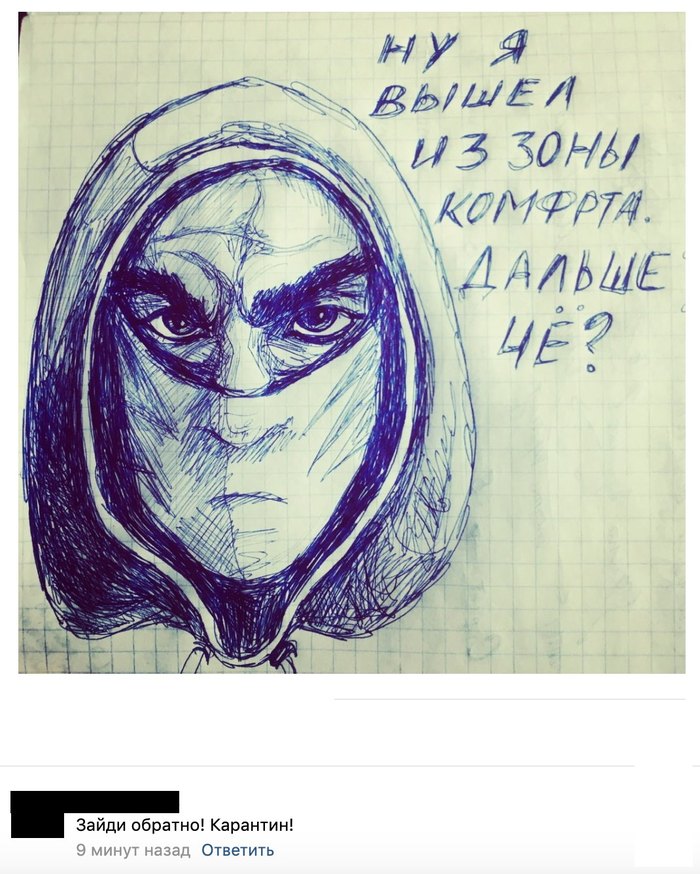 НУ Я
ВЫШЕЛ
ИЗ ЗОНЫ
КОМФРТА.
ДАЛЬШЕ
ЧЁ?
Зайди обратно! Карантин!
9 минут назад Ответить